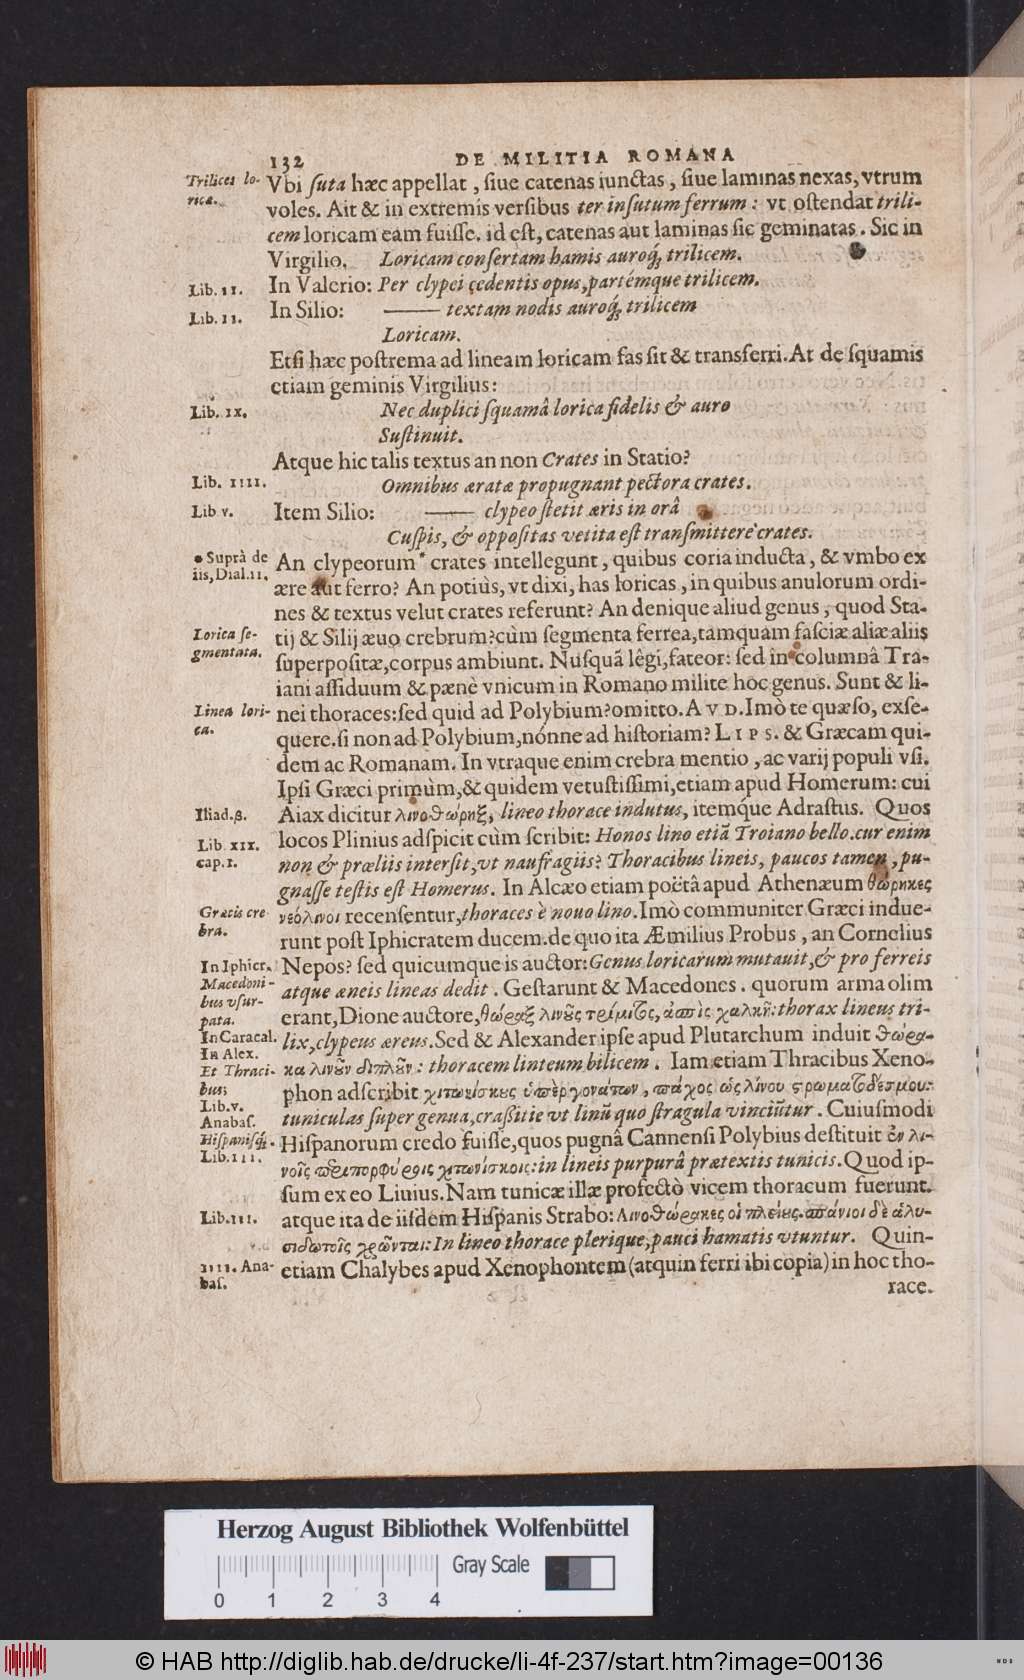 132 DE MILITIA ROMANA
Trilices lo-
ricæ.
Vbi suta hæc appellat, siue catenas iunctas, siue laminas nexas, vtrum
voles. Ait & in extremis versibus ter insutum ferrum: vt ostendat trili-
cem loricam eam fuisse. id est, catenas aut laminas sic geminatas. Sic in
Virgilio. Loricam consertam hamis auroq́; trilicem.
Lib. II. In Valerio: Per clypei cedentis opus, partémque trilicem.
Lib. II. In Silio: —— textam nodis auroq́; trilicem
Loricam.
Etsi hæc postrema ad lineam loricam fas sit & transferri. At de squamis
etiam geminis Virgilius:
Lib. IX. Nec duplici squamâ lorica fidelis & auro
Sustinuit.
Atque hic talis textus an non Crates in Statio?
Lib. IIII. Omnibus æratæ propugnant pectora crates.
Lib V. Item Silio: —— clypeo stetit æris in orâ
Cuspis, & oppositas vetita est transmittere crates.
* Suprà de
iis, Dial. II.
An clypeorum* crates intellegunt, quibus coria inducta, & vmbo ex
ære aut ferro? An potiùs, vt dixi, has loricas, in quibus anulorum ordi-
nes & textus velut crates referunt? An denique aliud genus, quod Sta-
Lorica se-
gmentata.
tij & Silij æuo crebrum? cùm segmenta ferrea, tamquam fasciæ aliæ aliis
superpositæ, corpus ambiunt. Nusquã lêgi, fateor: sed in columnâ Tra-
iani assiduum & pænè vnicum in Romano milite hoc genus. Sunt & li-
Linea lori-
ca.
nei thoraces: sed quid ad Polybium? omitto. AVD. Imò te quæso, exse-
quere. si non ad Polybium, nónne ad historiam? LIPS. & Græcam qui-
dem ac Romanam. In vtraque enim crebra mentio, ac varij populi vsi.
Ipsi Græci primùm, & quidem vetustissimi, etiam apud Homerum: cui
Iliad. β. Aiax dicitur λινοθώρηξ, lineo thorace indutus, itemque Adrastus. Quos
Lib. XIX.
cap. I.
locos Plinius adspicit cùm scribit: Honos lino etiã Troiano bello. cur enim
non & præliis intersit, vt naufragiis? Thoracibus lineis, paucos tamen, pu-
gnasse testis est Homerus. In Alcæo etiam poëtâ apud Athenæum θώρηκες
Græcis cre
bra.
νεόλινοι recensentur, thoraces è nouo lino. Imò communiter Græci indue-
runt post Iphicratem ducem. de quo ita Æmilius Probus, an Cornelius
In Iphicr. Nepos? sed quicumque is auctor: Genus loricarum mutauit, & pro ferreis
Macedoni-
bus vsur-
pata.
atque æneis lineas dedit. Gestarunt & Macedones. quorum arma olim
erant, Dione auctore, θώραξ λινοῦς τρίμιτος, ἀσπὶς χαλκῆ: thorax lineus tri-
In Caracal. lix, clypeus æreus. Sed & Alexander ipse apud Plutarchum induit θώρα-
In Alex.
Et Thraci-
bus
κα λινοῦν διπλοῦν: thoracem linteum bilicem. Iam etiam Thracibus Xeno-
phon adscribit χιτωνίσκους ὑπὲρ γονάτων, πάχος ὡς λίνου στρωματόδεσμου:
Lib. V.
Anabas.
tuniculas super genua, crassitie vt linũ quo stragula vinciũtur. Cuiusmodi
Hispanisq́;.
Lib. III.
Hispanorum credo fuisse, quos pugnâ Cannensi Polybius destituit ἐν λι-
νοῖς περιπορφύροις χιτωνίσκοις: in lineis purpurâ prætextis tunicis. Quod ip-
sum ex eo Liuius. Nam tunicæ illæ profectò vicem thoracum fuerunt.
Lib. III. atque ita de iisdem Hispanis Strabo: Λινοθώρακες οἱ πλείους. σπάνιοι δὲ ἁλυ-
σιδωτοῖς χρῶνται: In lineo thorace plerique, pauci hamatis vtuntur. Quin-
IIII. Ana-
bas.
etiam Chalybes apud Xenophontem (atquin ferri ibi copia) in hoc tho-
race.
Herzog August Bibliothek Wolfenbüttel
Gray Scale
0 1 2 3 4
© HAB http://diglib.hab.de/drucke/li-4f-237/start.htm?image=00136